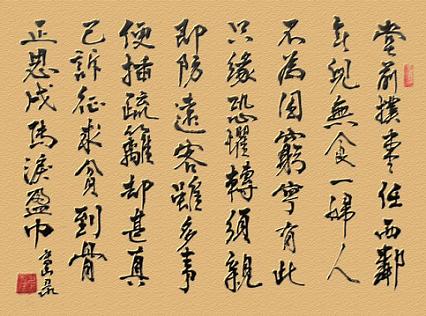 堂前撲棗任西鄰
無兒無食一婦人
不為困窮寧有此
只緣恐懼轉須親
即防遠客雖多事
便插疏籬却甚真
已訴征求貧到骨
正思戎馬淚盈巾